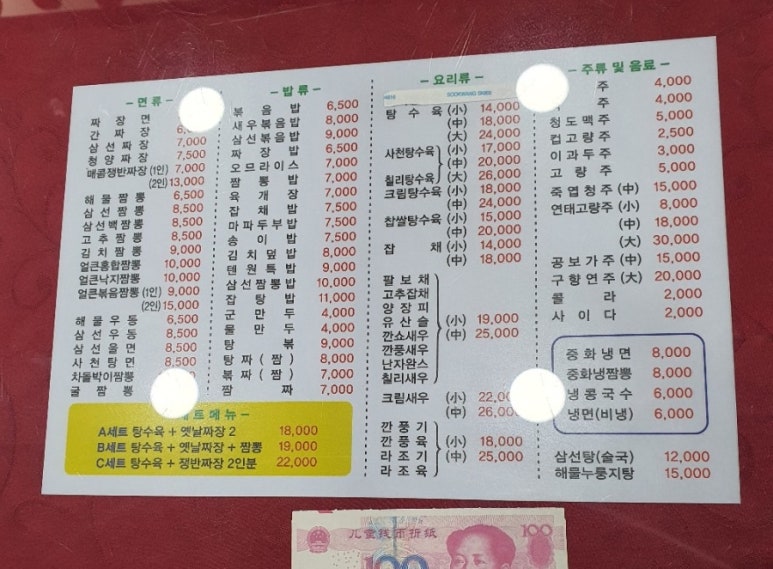 - 면 류 -
짜 장 면
간 짜 장
삼 선 짜 장 7,000
청 양 짜 장 7,500
매콤쟁반짜장 (1인) 7,000
(2인) 13,000
해 물 짬 뽕 6,500
삼 선 짬 뽕 8,500
삼선백짬뽕 8,500
고 추 짬 뽕 8,500
김 치 짬 뽕 9,000
얼큰홍합짬뽕 10,000
얼큰낙지짬뽕 10,000
얼큰볶음짬뽕 (1인) 9,000
(2인) 15,000
해 물 우 동 6,500
삼 선 우 동 8,500
삼 선 울 면 8,500
사 천 탕 면 8,500
차돌박이짬뽕
굴 짬 뽕 8,500
- 밥 류 -
볶 음 밥 6,500
새우볶음밥 8,000
삼선볶음밥 9,000
짜 장 밥 6,500
오므라이스 7,000
짬 뽕 밥 7,000
육 개 장 7,500
잡 채 밥 7,500
마파두부밥 7,500
송 이 밥 7,500
김 치 덮 밥 8,000
텐 원 특 밥 9,000
삼선짬뽕밥 10,000
잡 탕 밥 11,000
군 만 두 4,000
물 만 두 4,000
탕 볶 9,000
탕 짜 ( 짬 ) 8,000
볶 짜 ( 짬 ) 7,000
짬 짜 7,000
세트메뉴
A세트 탕수육 + 옛날짜장 2 18,000
B세트 탕수육 + 옛날짜장 + 짬뽕 19,000
C세트 탕수육 + 쟁반짜장 2인분 22,000
- 요리류 -
탕 수 육 (小) 14,000
(中) 18,000
(大) 24,000
사천탕수육 (小) 17,000
(中) 20,000
칠리탕수육 (大) 26,000
크림탕수육 (小) 18,000
(中) 24,000
찹쌀탕수육 (小) 15,000
(中) 20,000
잡 채 (小) 14,000
(中) 18,000
팔 보 채
고추잡채
양 장 피
유 산 슬 (小) 19,000
깐쇼새우 (中) 25,000
깐풍새우
난자완스
칠리새우
크림새우 (小)
(中) 26,000
깐 풍 기
깐 풍 육 (小) 18,000
라 조 기 (中) 25,000
라 조 육
- 주류 및 음료 -
주 4,000
주 4,000
청 도 맥 주 5,000
컵 고 량 주 2,500
이 과 두 주 3,000
고 량 주 5,000
죽 엽 청 주 (中) 15,000
연태고량주 (小) 8,000
(中) 18,000
(大) 30,000
공 보 가 주 (中) 15,000
구 향 연 주 (大) 20,000
콜 라 2,000
사 이 다 2,000
중 화 냉 면 8,000
중화냉짬뽕 8,000
냉 콩 국 수 6,000
냉면(비냉) 6,000
삼선탕(술국) 12,000
해물누룽지탕 15,000
儿童钱币折纸
100
100